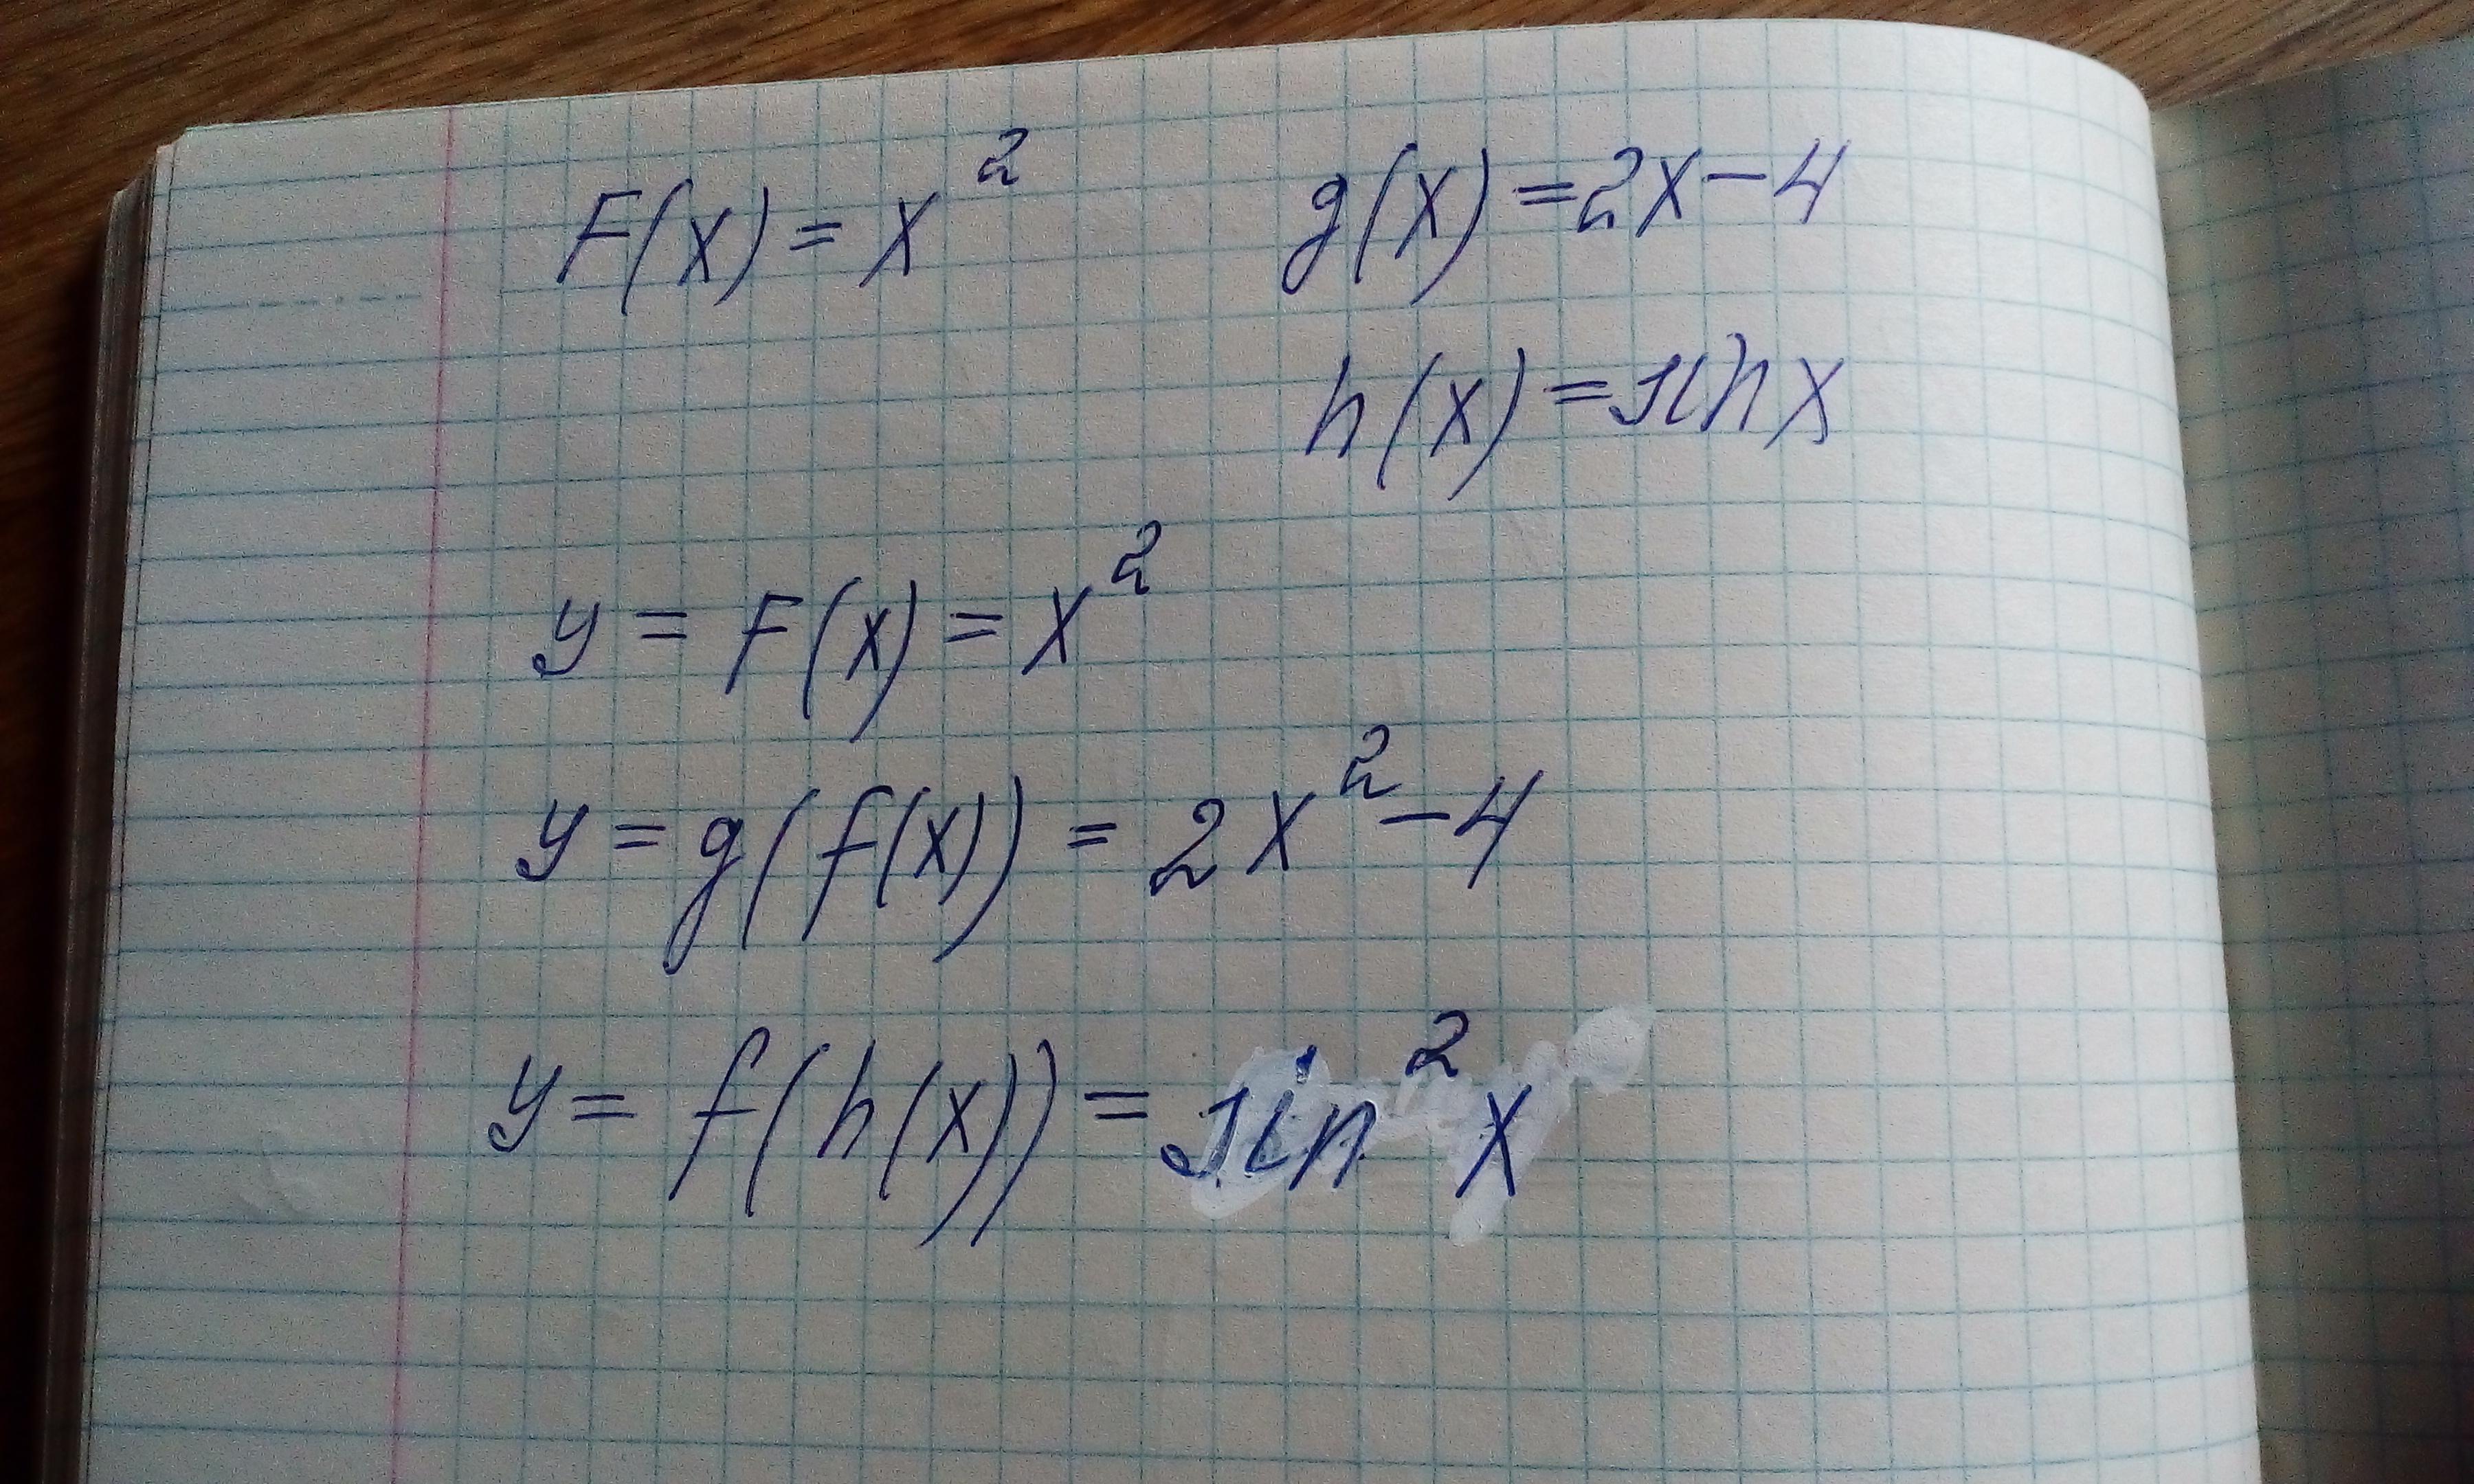 F(x) = x² g(x) = 2x - 4
h(x) = sin x
y = F(x) = x²
y = g(f(x)) = 2x² - 4
y = f(h(x)) = sin² x